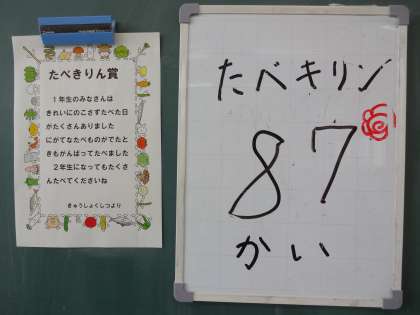 たべきりん賞
１年生のみなさんは
きれいにのこさずたべた日
がたくさんありました
にがてなたべものがでたと
きもがんばってたべました
２年生になってもたくさ
んたべてくださいね
きゅうしょくしつより
たべキリン
87
かい